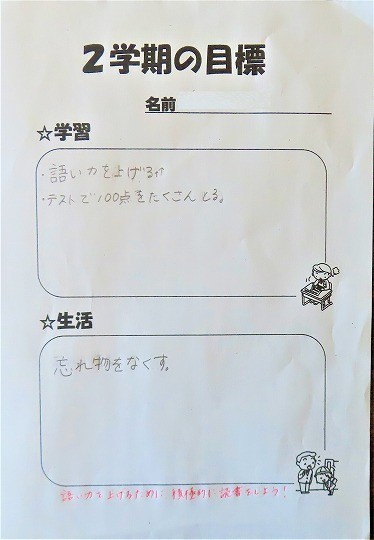 2学期の目標
名前
☆学習
・語い力を上げる↑
・テストで100点をたくさんとる。
☆生活
忘れ物をなくす。
語い力を上げるために積極的に読書をしよう!